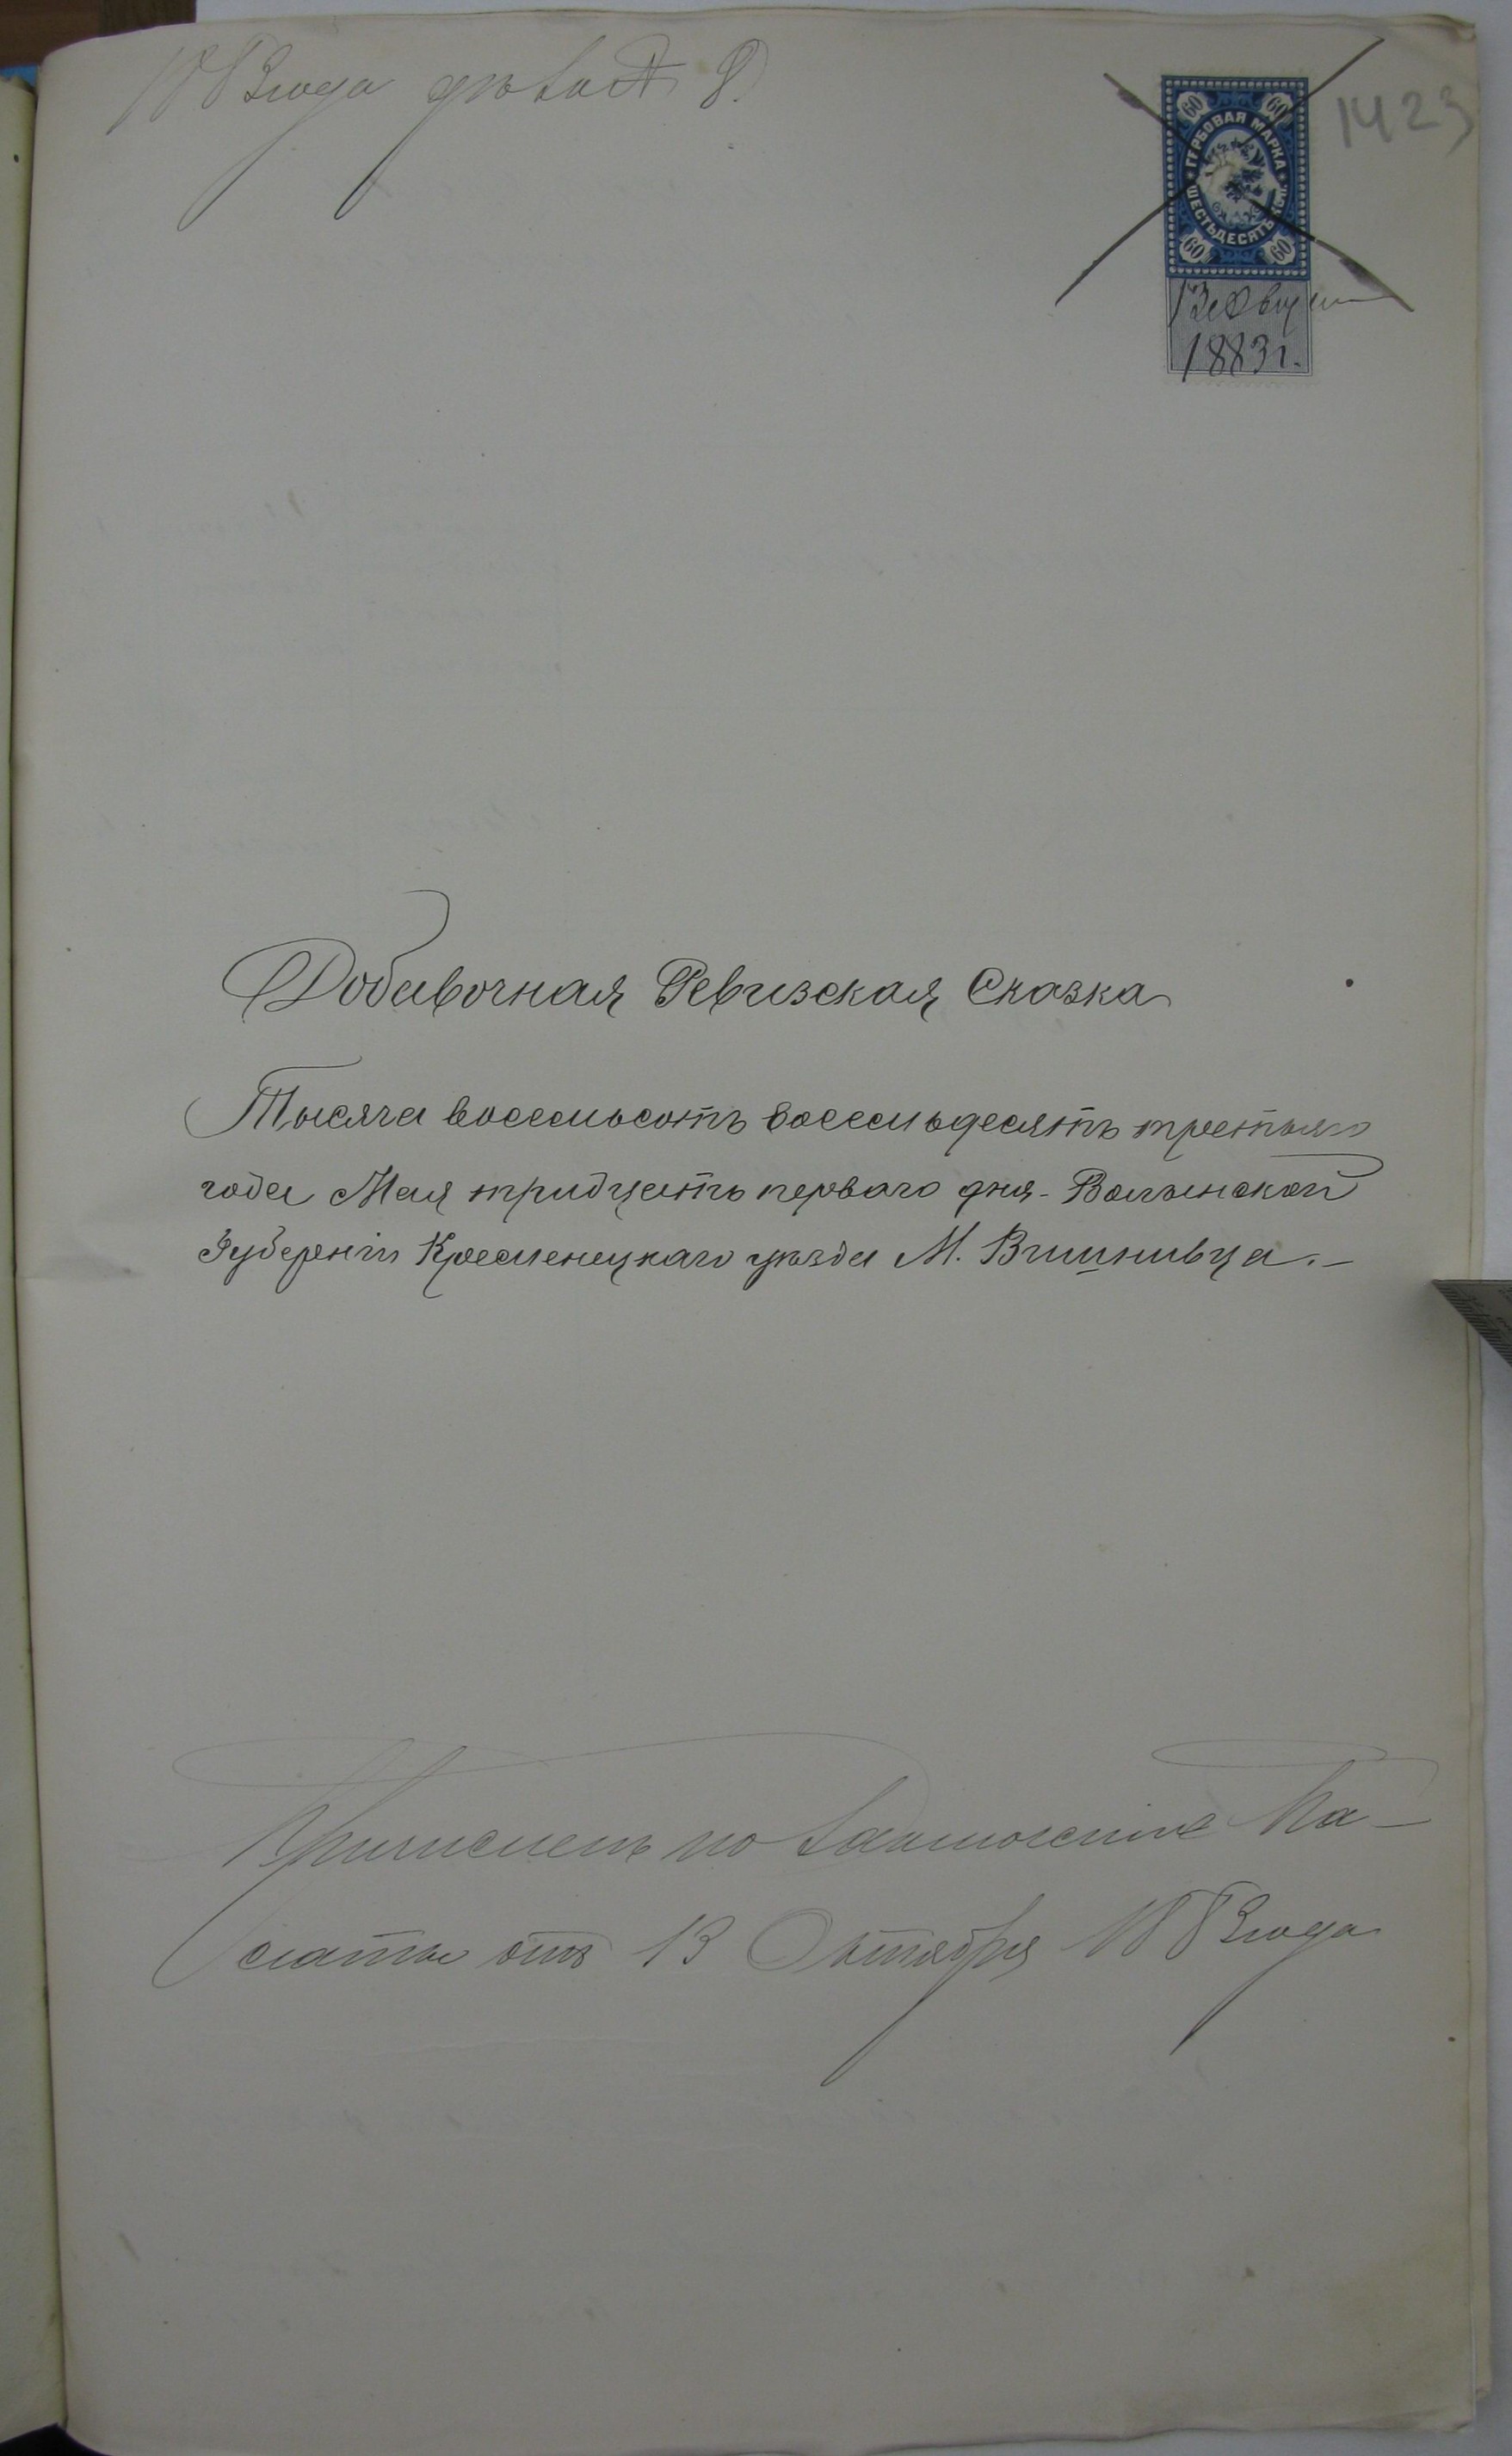 1883 года
1423
60 60
ГЕРБОВАЯ МАРКА
ШЕСТЬДЕСЯТЬ КОП.
60 60
1883 г.
Добавочная Ревизская Сказка
Тысяча восемьсотъ восемьдесятъ третьяго
года Мая тридцать перваго дня - Волынской
Губерніи Кременецкаго уѣзда М. Вишнивца. –
Причисленъ по Па-
латы отъ 13 Октября 1883 года